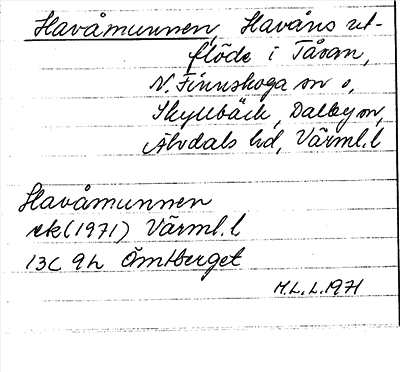 Havåmunnen, Havåns ut-
flöde i Tåsan,
N. Finnskoga sn o,
Skyllbäck, Dalby sn,
Älvdals hd, Värml. l
Havåmunnen
ek (1971) Värml. l
13C 9h Ömtberget
M.L.L. 1971